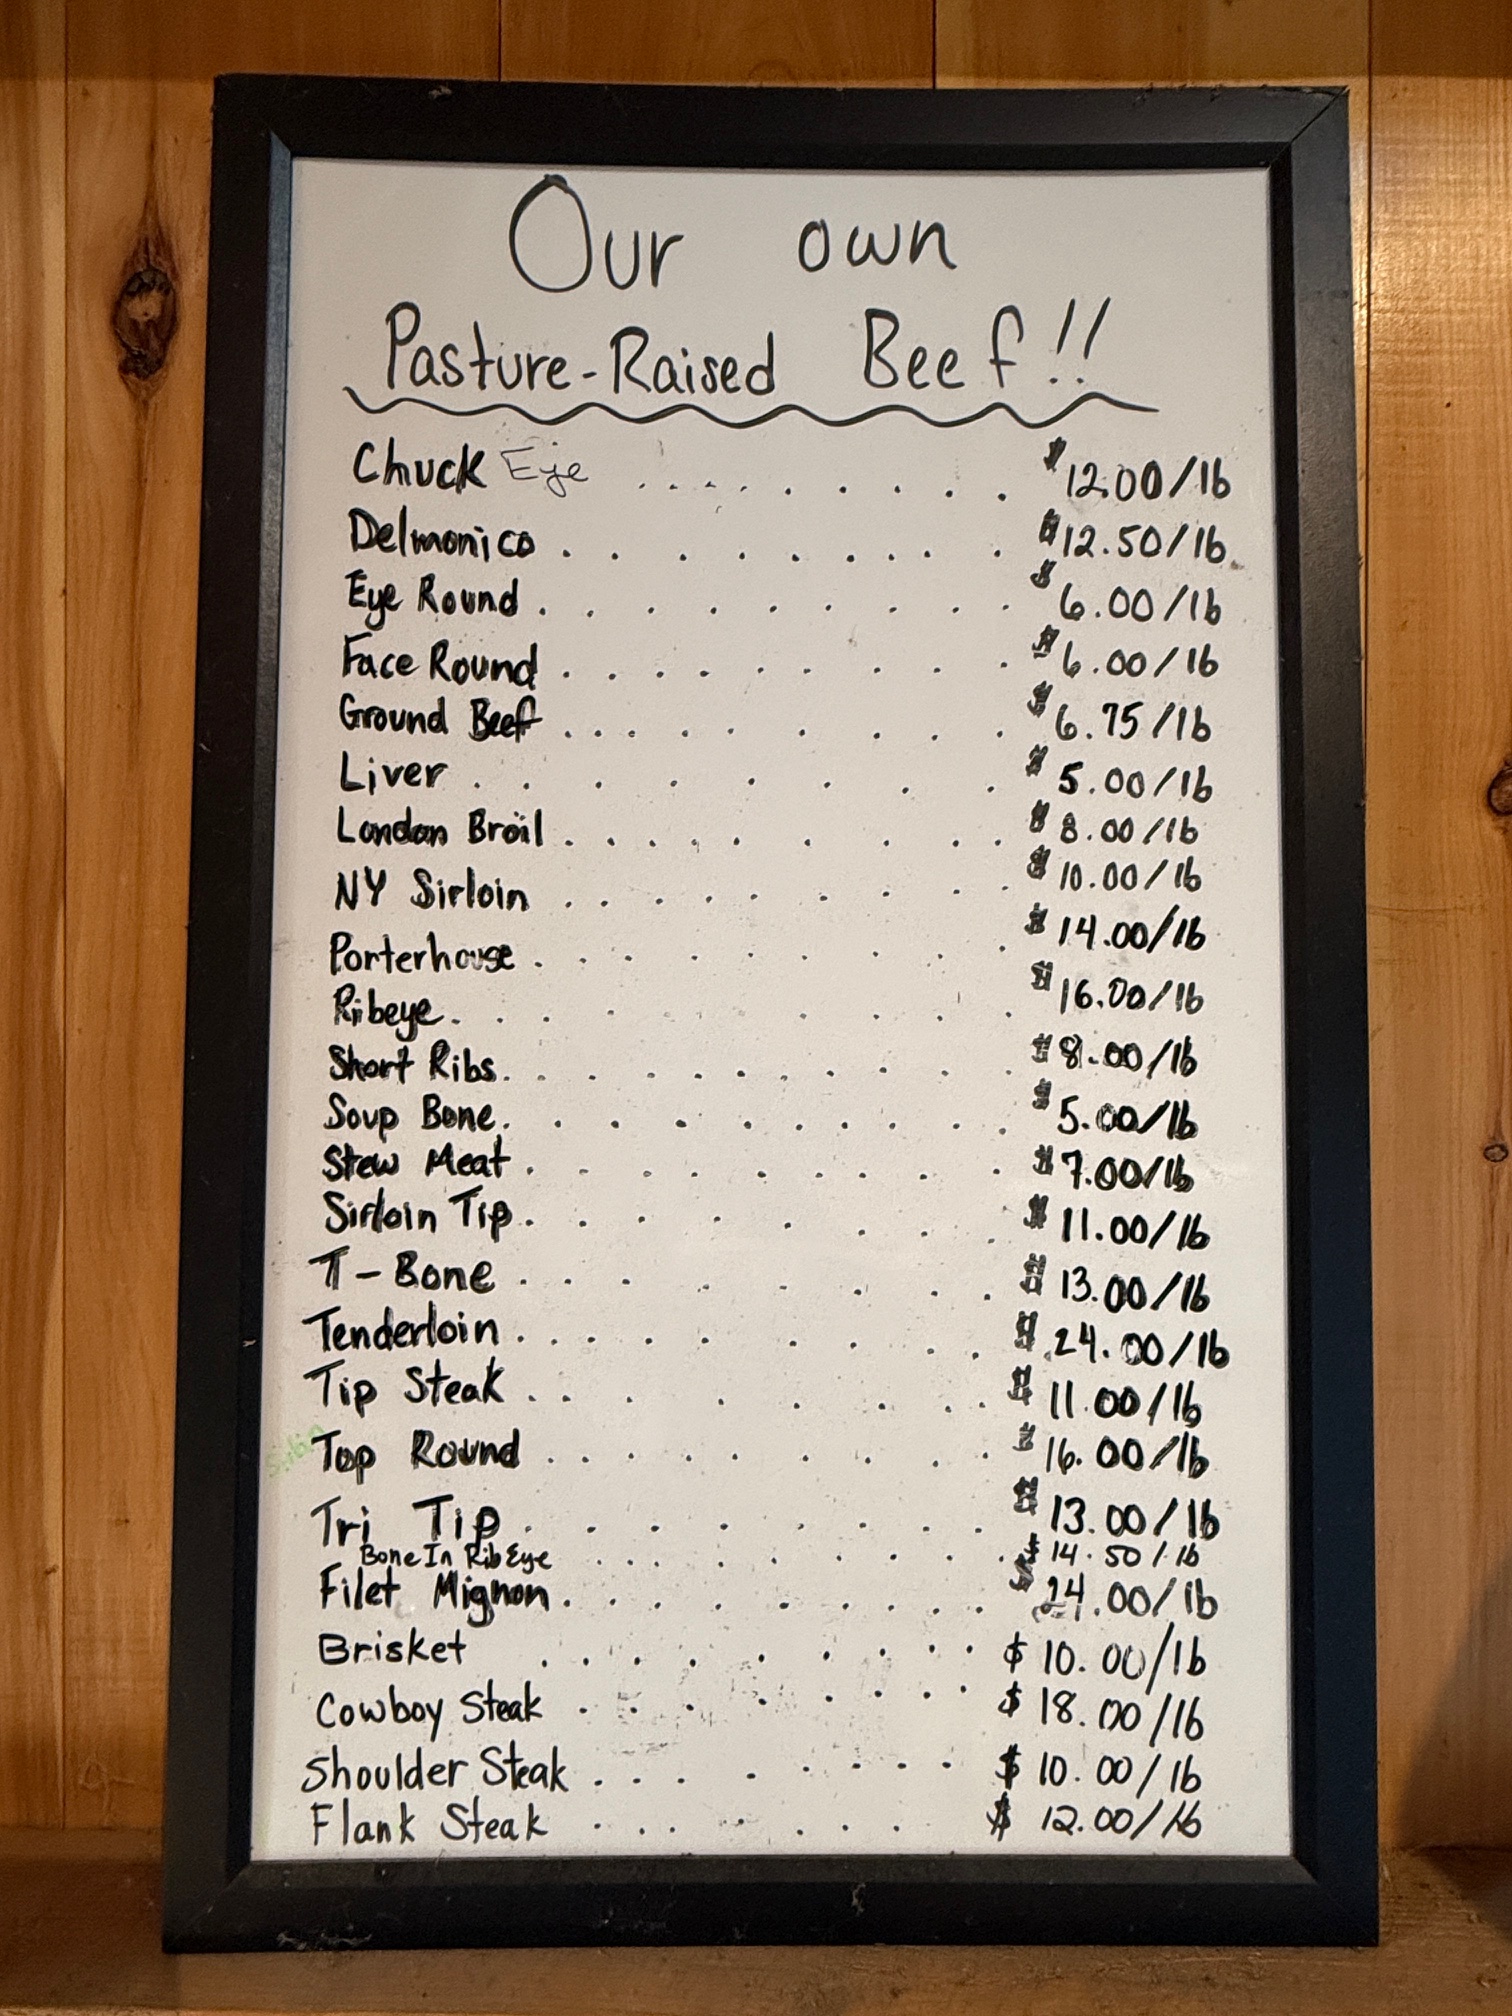 Our own
Pasture-Raised Beef!!
Chuck Eye ......... $12.00/lb
Delmonico ......... $12.50/lb
Eye Round ......... $6.00/lb
Face Round ......... $6.00/lb
Ground Beef ......... $6.75/lb
Liver ......... $5.00/lb
London Broil ......... $8.00/lb
NY Sirloin ......... $10.00/lb
Porterhouse ......... $14.00/lb
Ribeye ......... $16.00/lb
Short Ribs ......... $8.00/lb
Soup Bone ......... $5.00/lb
Stew Meat ......... $7.00/lb
Sirloin Tip ......... $11.00/lb
T-Bone ......... $13.00/lb
Tenderloin ......... $24.00/lb
Tip Steak ......... $11.00/lb
Top Round ......... $16.00/lb
Tri Tip ......... $13.00/lb
Bone In Rib Eye ......... $14.50/lb
Filet Mignon ......... $24.00/lb
Brisket ......... $10.00/lb
Cowboy Steak ......... $18.00/lb
Shoulder Steak ......... $10.00/lb
Flank Steak ......... $12.00/lb